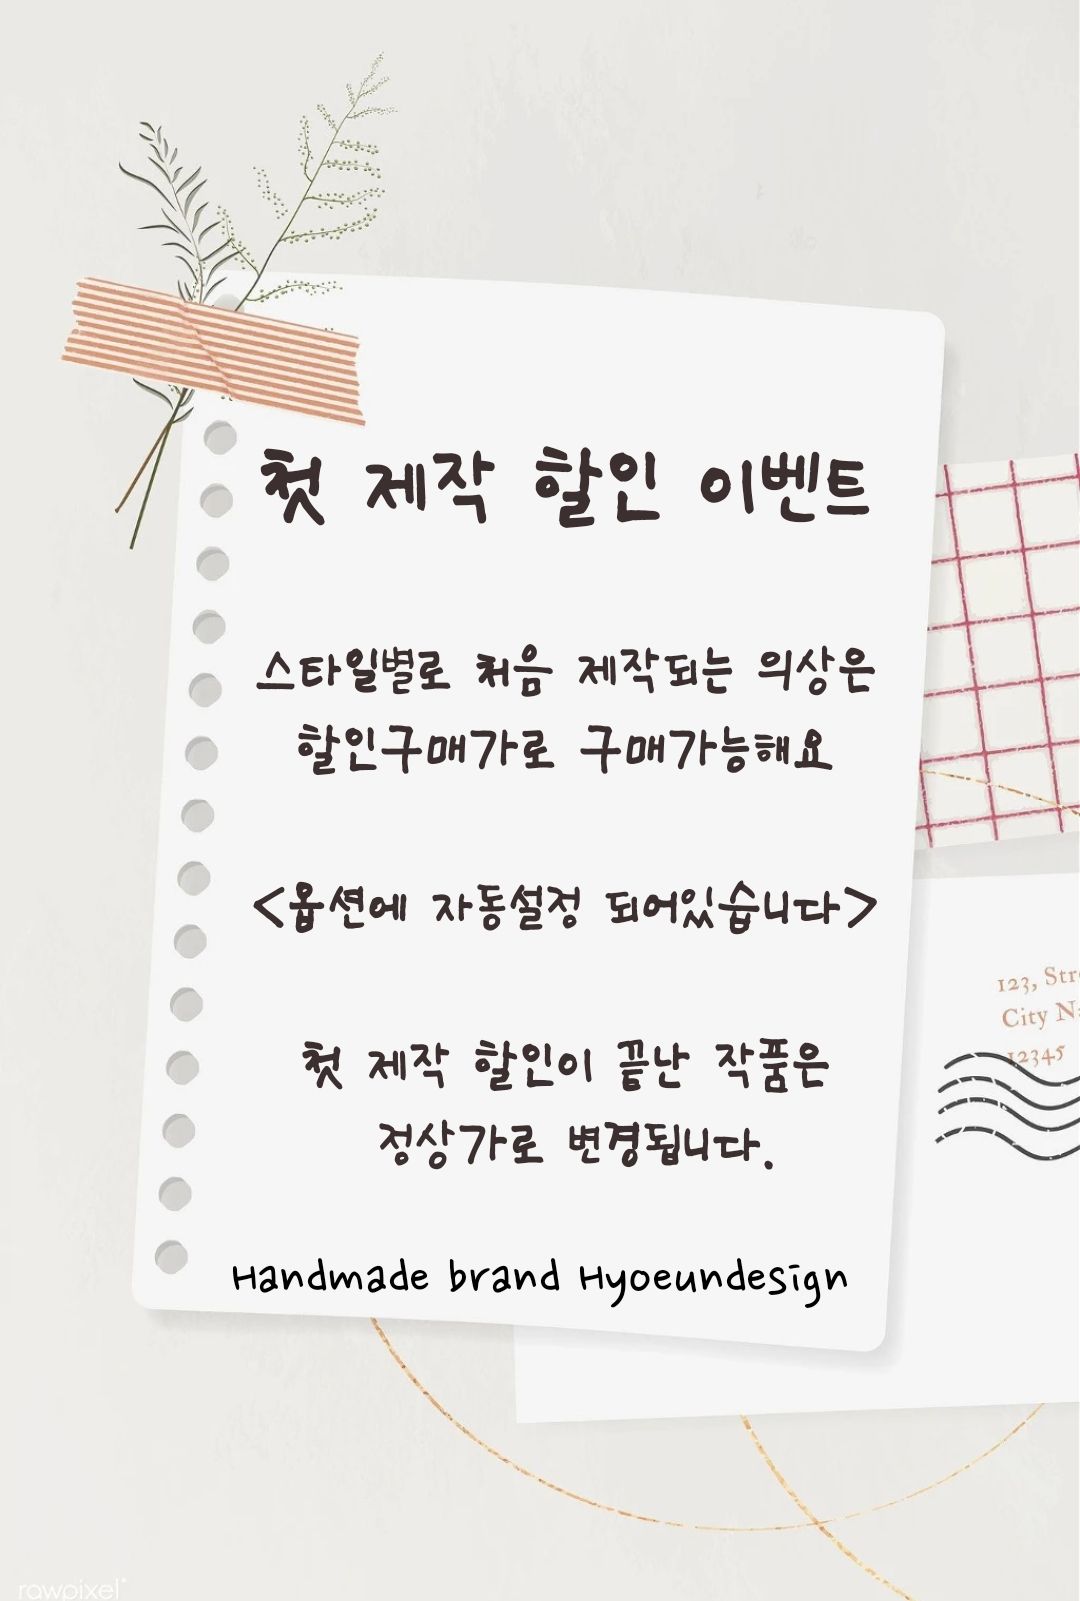 첫 제작 할인 이벤트
스타일별로 처음 제작되는 의상은
할인구매가로 구매가능해요
<옵션에 자동설정 되어있습니다>
첫 제작 할인이 끝난 작품은
정상가로 변경됩니다.
Handmade brand Hyoeundesign
123,
City
12345
rawpixel